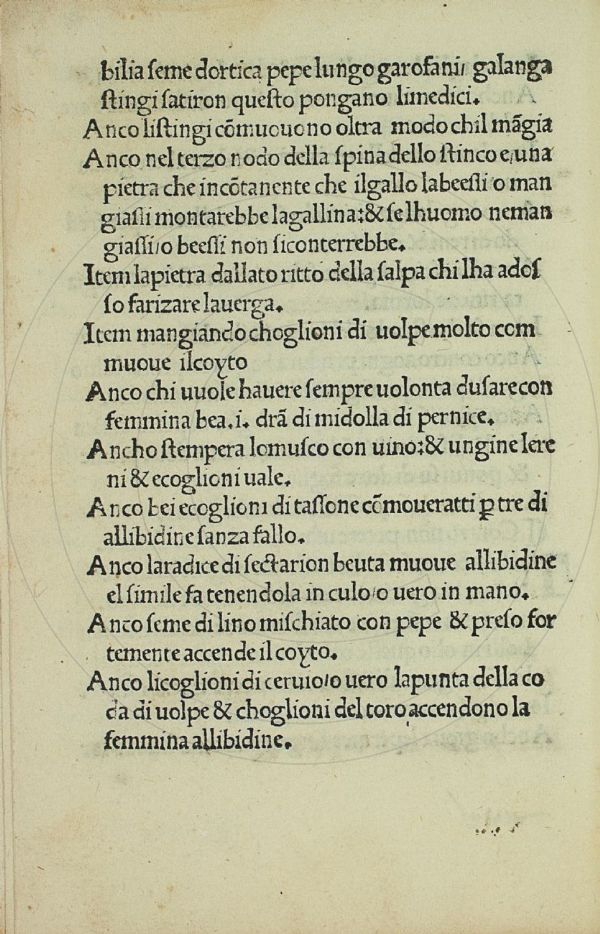 bilia ſeme dortica pepe lungo garofani/ galanga
ſtingi ſatiron queſto pongano limedici.
Anco liſtingi cōmuouono oltra modo chil māgia
Anco nel terzo nodo della ſpina dello ſtinco e/una
pietra che incōtanente che ilgallo labeeſſi o man
giaſſi montarebbe lagallina:& ſe lhuomo neman
giaſſi/o beeſſi non ſiconterrebbe.
Item lapietra dallato ritto della ſalpa chi lha adoſ
ſo farizare lauerga.
Item mangiando choglioni di uolpe molto com
muoue ilcoyto
Anco chi uuole hauere ſempre uolonta duſare con
femmina bea .i. drā di midolla di pernice.
Ancho ſtempera lomuſco con uino:& ungine lere
ni & ecoglioni uale.
Anco bei ecoglioni di taſſone cōmoueratti ꝑ tre di
allibidine ſanza fallo.
Anco laradice di ſectarion beuta muoue allibidine
el ſimile fa tenendola in culo/o uero in mano.
Anco ſeme di lino miſchiato con pepe & preſo for
temente accende il coyto.
Anco licoglioni di ceruio/o uero lapunta della co
da di uolpe & choglioni del toro accendono la
femmina allibidine.